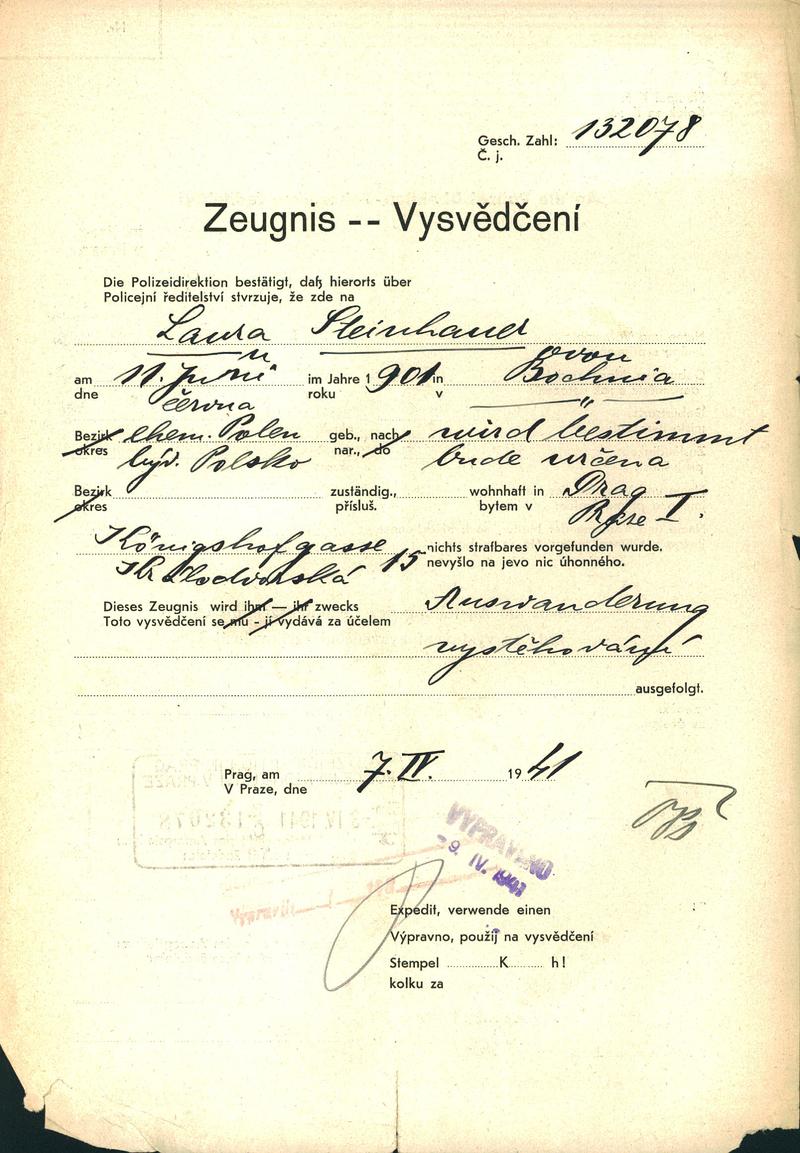 Gesch. Zahl: 132078
Č. j.
Zeugnis -- Vysvědčení
Die Polizeidirektion bestätigt, daß hierorts über
Policejní ředitelství stvrzuje, že zde na
Laura Steinhauer
am 11. Juni im Jahre 1901 in Bochnia
dne června roku v "
Bezirk ehem. Polen geb., nach wird bestimmt
okres býv. Polsko nar., do bude určena
Bezirk zuständig., wohnhaft in Prag
okres přísluš. bytem v Praze I.
Königshofgasse 15 nichts strafbares vorgefunden wurde.
Králodvorská nevyšlo na jevo nic úhonného.
Dieses Zeugnis wird ihm — ihr zwecks Auswanderung
Toto vysvědčení se mu - jí vydává za účelem
vystěhování
ausgefolgt.
Prag, am 7. IV. 1941
V Praze, dne
VYPRAVENO
-9. IV. 1941
Expedit, verwende einen
Výpravno, použij na vysvědčení
Stempel K h!
kolku za